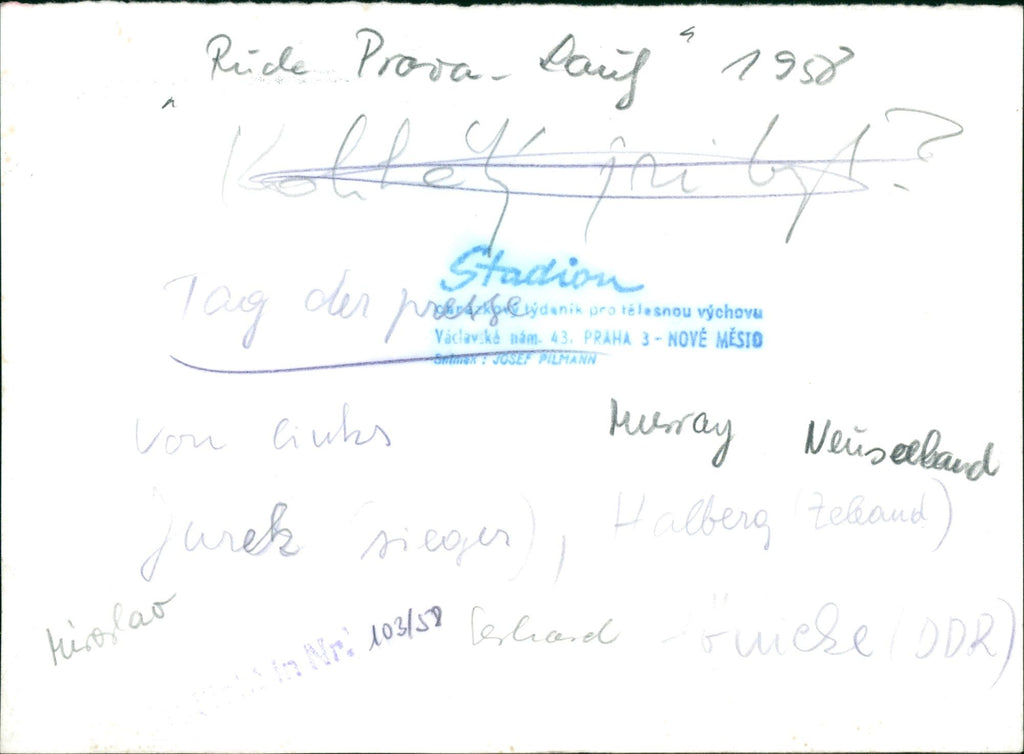 "Rude Prava-Lauf" 1958
Tag der presse
Stadion
obrázkový týdeník pro tělesnou výchovu
Václavské nám. 43, PRAHA 3 - NOVÉ MĚSTO
Snímek : JOSEF PILMANN
von links
Murray Neuseeland
Jurek (sieger), Halberg (Zeland)
Miroslav
in Nr. 103/58
Gerhard Hönicke (DDR)